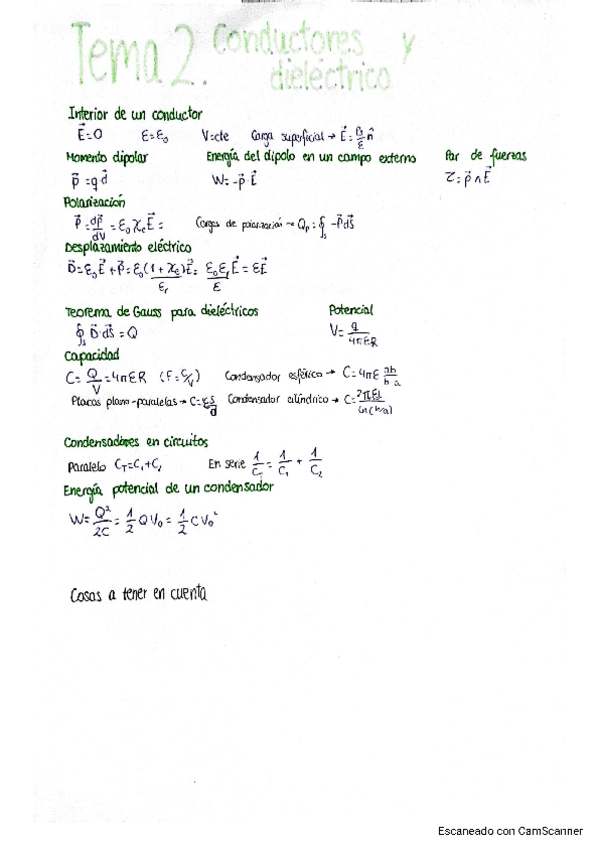 Tema 2. Conductores y dieléctrico
Interior de un conductor
E⃗=0 ε=ε₀ V=cte Carga superficial → E⃗=σ/ε n̂
Momento dipolar Energía del dipolo en un campo externo Par de fuerzas
p⃗=q·d⃗ W=-p⃗·E⃗ τ=p⃗∧E⃗
Polarización
P⃗=dp⃗/dV=ε₀χₑE⃗= Cargas de polarización → Qp=∮s -P⃗dS⃗
Desplazamiento eléctrico
D⃗=ε₀E⃗+P⃗=ε₀(1+χₑ)E⃗=ε₀εᵣE⃗=εE⃗
εᵣ ε
Teorema de Gauss para dieléctricos Potencial
∮s D⃗·dS⃗=Q V=q/4πεR
Capacidad
C=Q/V=4πεR (F=C/V) Condensador esférico → C=4πε ab/b a
Placas plano-paralelas → C=εS/d Condensador cilíndrico → C=2πεl/Ln(b/a)
Condensadores en circuitos
Paralelo C_T=C₁+C₂ En serie 1/C_T=1/C₁+1/C₂
Energía potencial de un condensador
W=Q²/2C=1/2 QV₀=1/2 CV₀²
Cosas a tener en cuenta
Escaneado con CamScanner